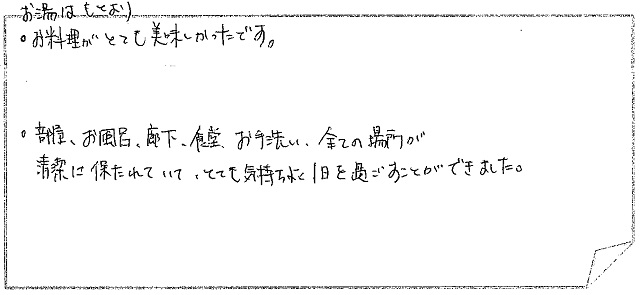 お湯はもとより
。お料理がとても美味しかったです。
。部屋、お風呂、廊下、食堂、お手洗い、全ての場所が
清潔に保たれていて、とても気持ちよく1日を過ごすことができました。